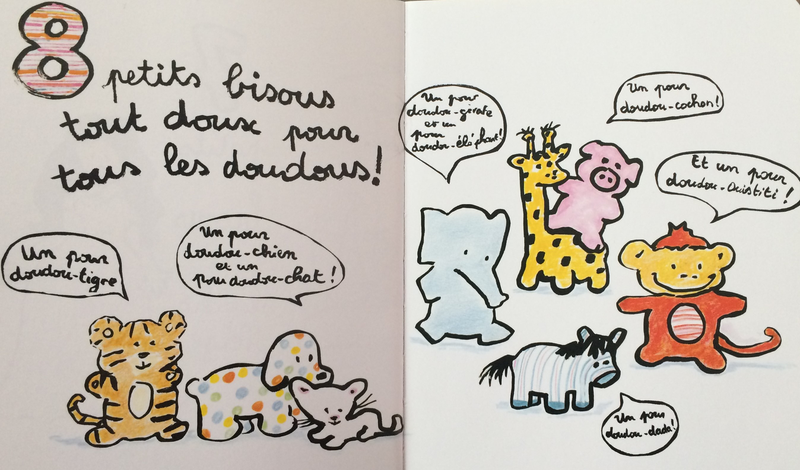 8 petits bisous
tout doux pour
tous les doudous!
Un pour
doudou-tigre
Un pour
doudou-chien
et un
pour doudou-chat!
Un pour
doudou-girafe
et un
pour
doudou-éléphant!
Un pour
doudou-cochon!
Et un pour
doudou-Ouistiti!
Un pour
doudou-dada!